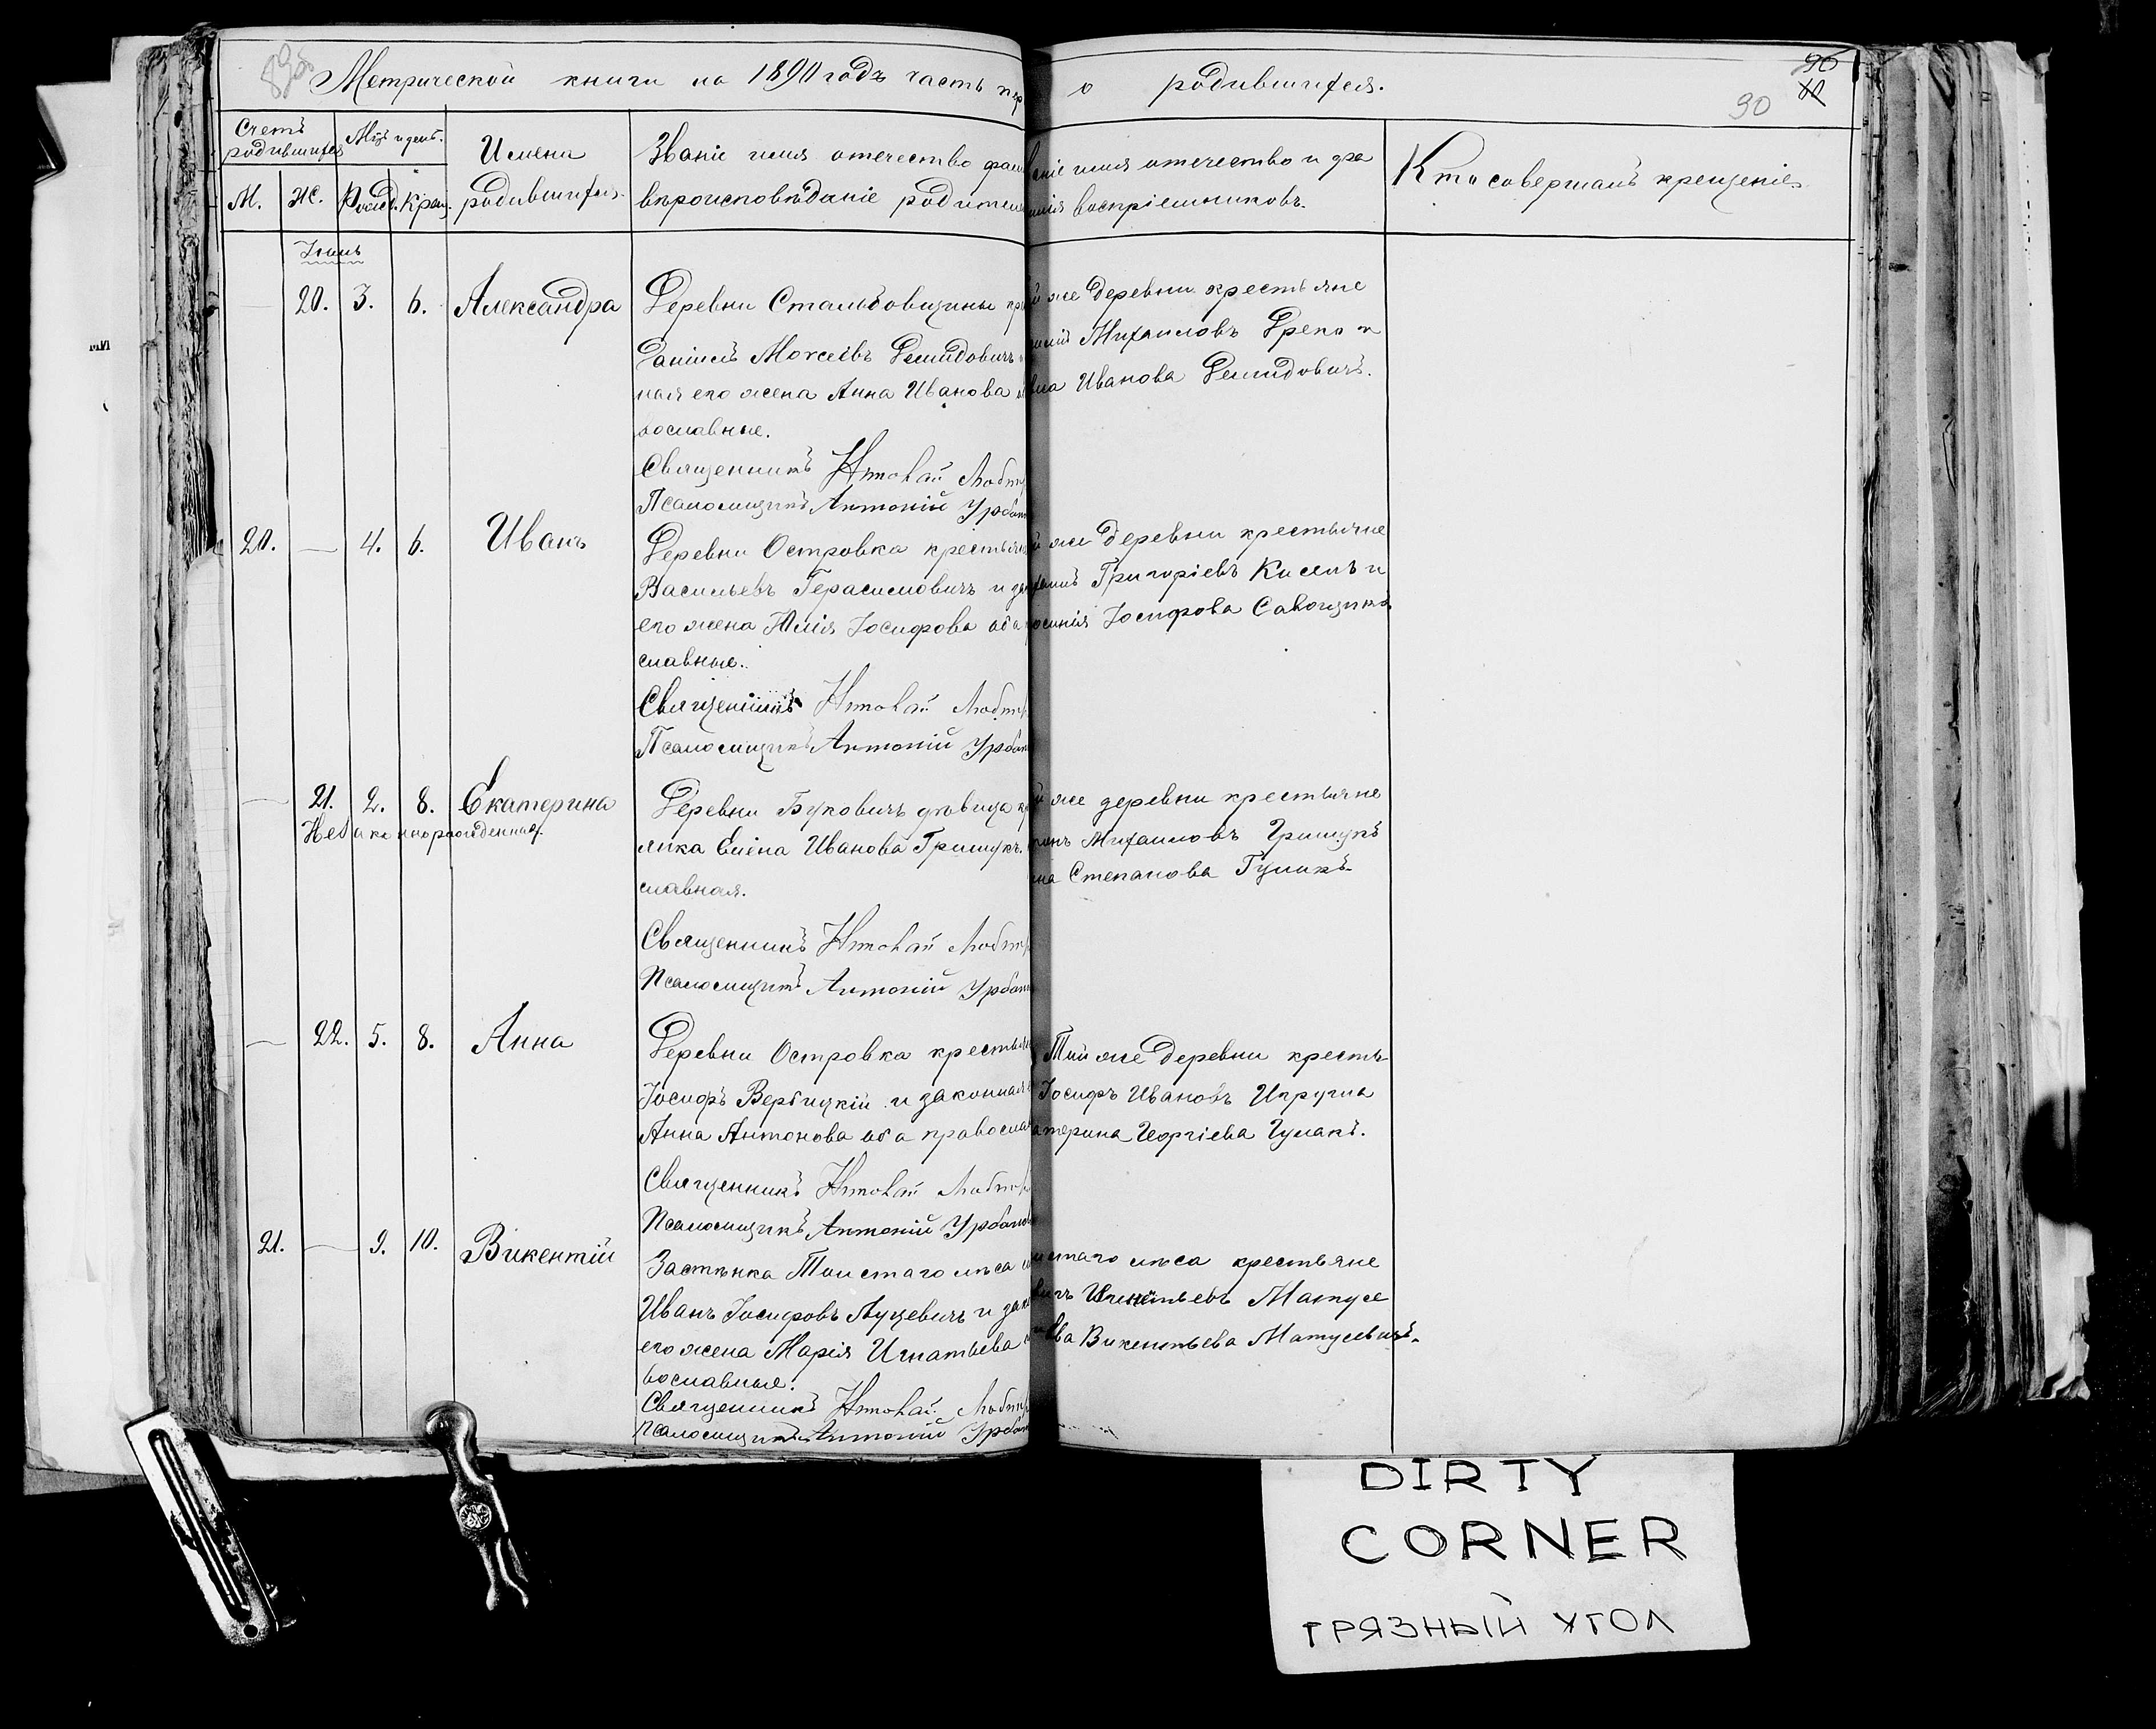 Метрической книги на 1890 годъ часть пер
о родившихся.
90
Счетъ родившихся
Мцъ и ден.
М.
Ж.
Рожд.
Крещ.
Имена
родившихся.
Званіе имя отечество фам
вѣроисповѣданіе родителе
аніе имя отечество и фа
милія воспріемниковъ.
Кто совершалъ крещеніе.
Іюнь
20. 3. 6. Александра
Деревни кр
Даніилъ Моѵсеевъ Демидовичъ
ная его жена Анна Иванова
вославные.
Священникъ
Псаломщикъ Антоній Урбан
й же деревни крестьяне
Михаиловъ Греко и
Иванова Демидовичъ.
20. — 4. 6. Иванъ
Деревни Островка крестьян
Васильевъ Герасимовичъ и за
его жена Юлія Іосифова оба
славные.
Священникъ
Псаломщикъ Антоній Урбан
й же деревни крестьяне
Григоріевъ Кисель и
Іосифова
— 21. 2. 8. Екатерина
Незаконнорожденная.
Деревни Буковичъ дѣвица кр
янка Елена Иванова Гришукъ.
славная.
Священникъ
Псаломщикъ Антоній Урбан
й же деревни крестьяне
Михаиловъ Гришукъ
на Степанова
— 22. 5. 8. Анна
Деревни Островка крестьян
Іосифъ Вербицкій и законная
Анна Антонова оба правосла
Священникъ
Псаломщикъ Антоній Урбанов
Той же деревни кресть
Іосифъ Ивановъ
атерина Георгіева
21. — 9. 10. Викентій
Застѣнка Толстаго лѣса
Иванъ Іосифовъ Луцевичъ и зако
его жена Марія Игнатьева
вославные.
Священникъ
Псаломщикъ Антоній Урбан
лстаго лѣса крестьяне
Матусе
Викентьева Матусевичъ.
DIRTY
CORNER
ГРЯЗНЫЙ УГОЛ